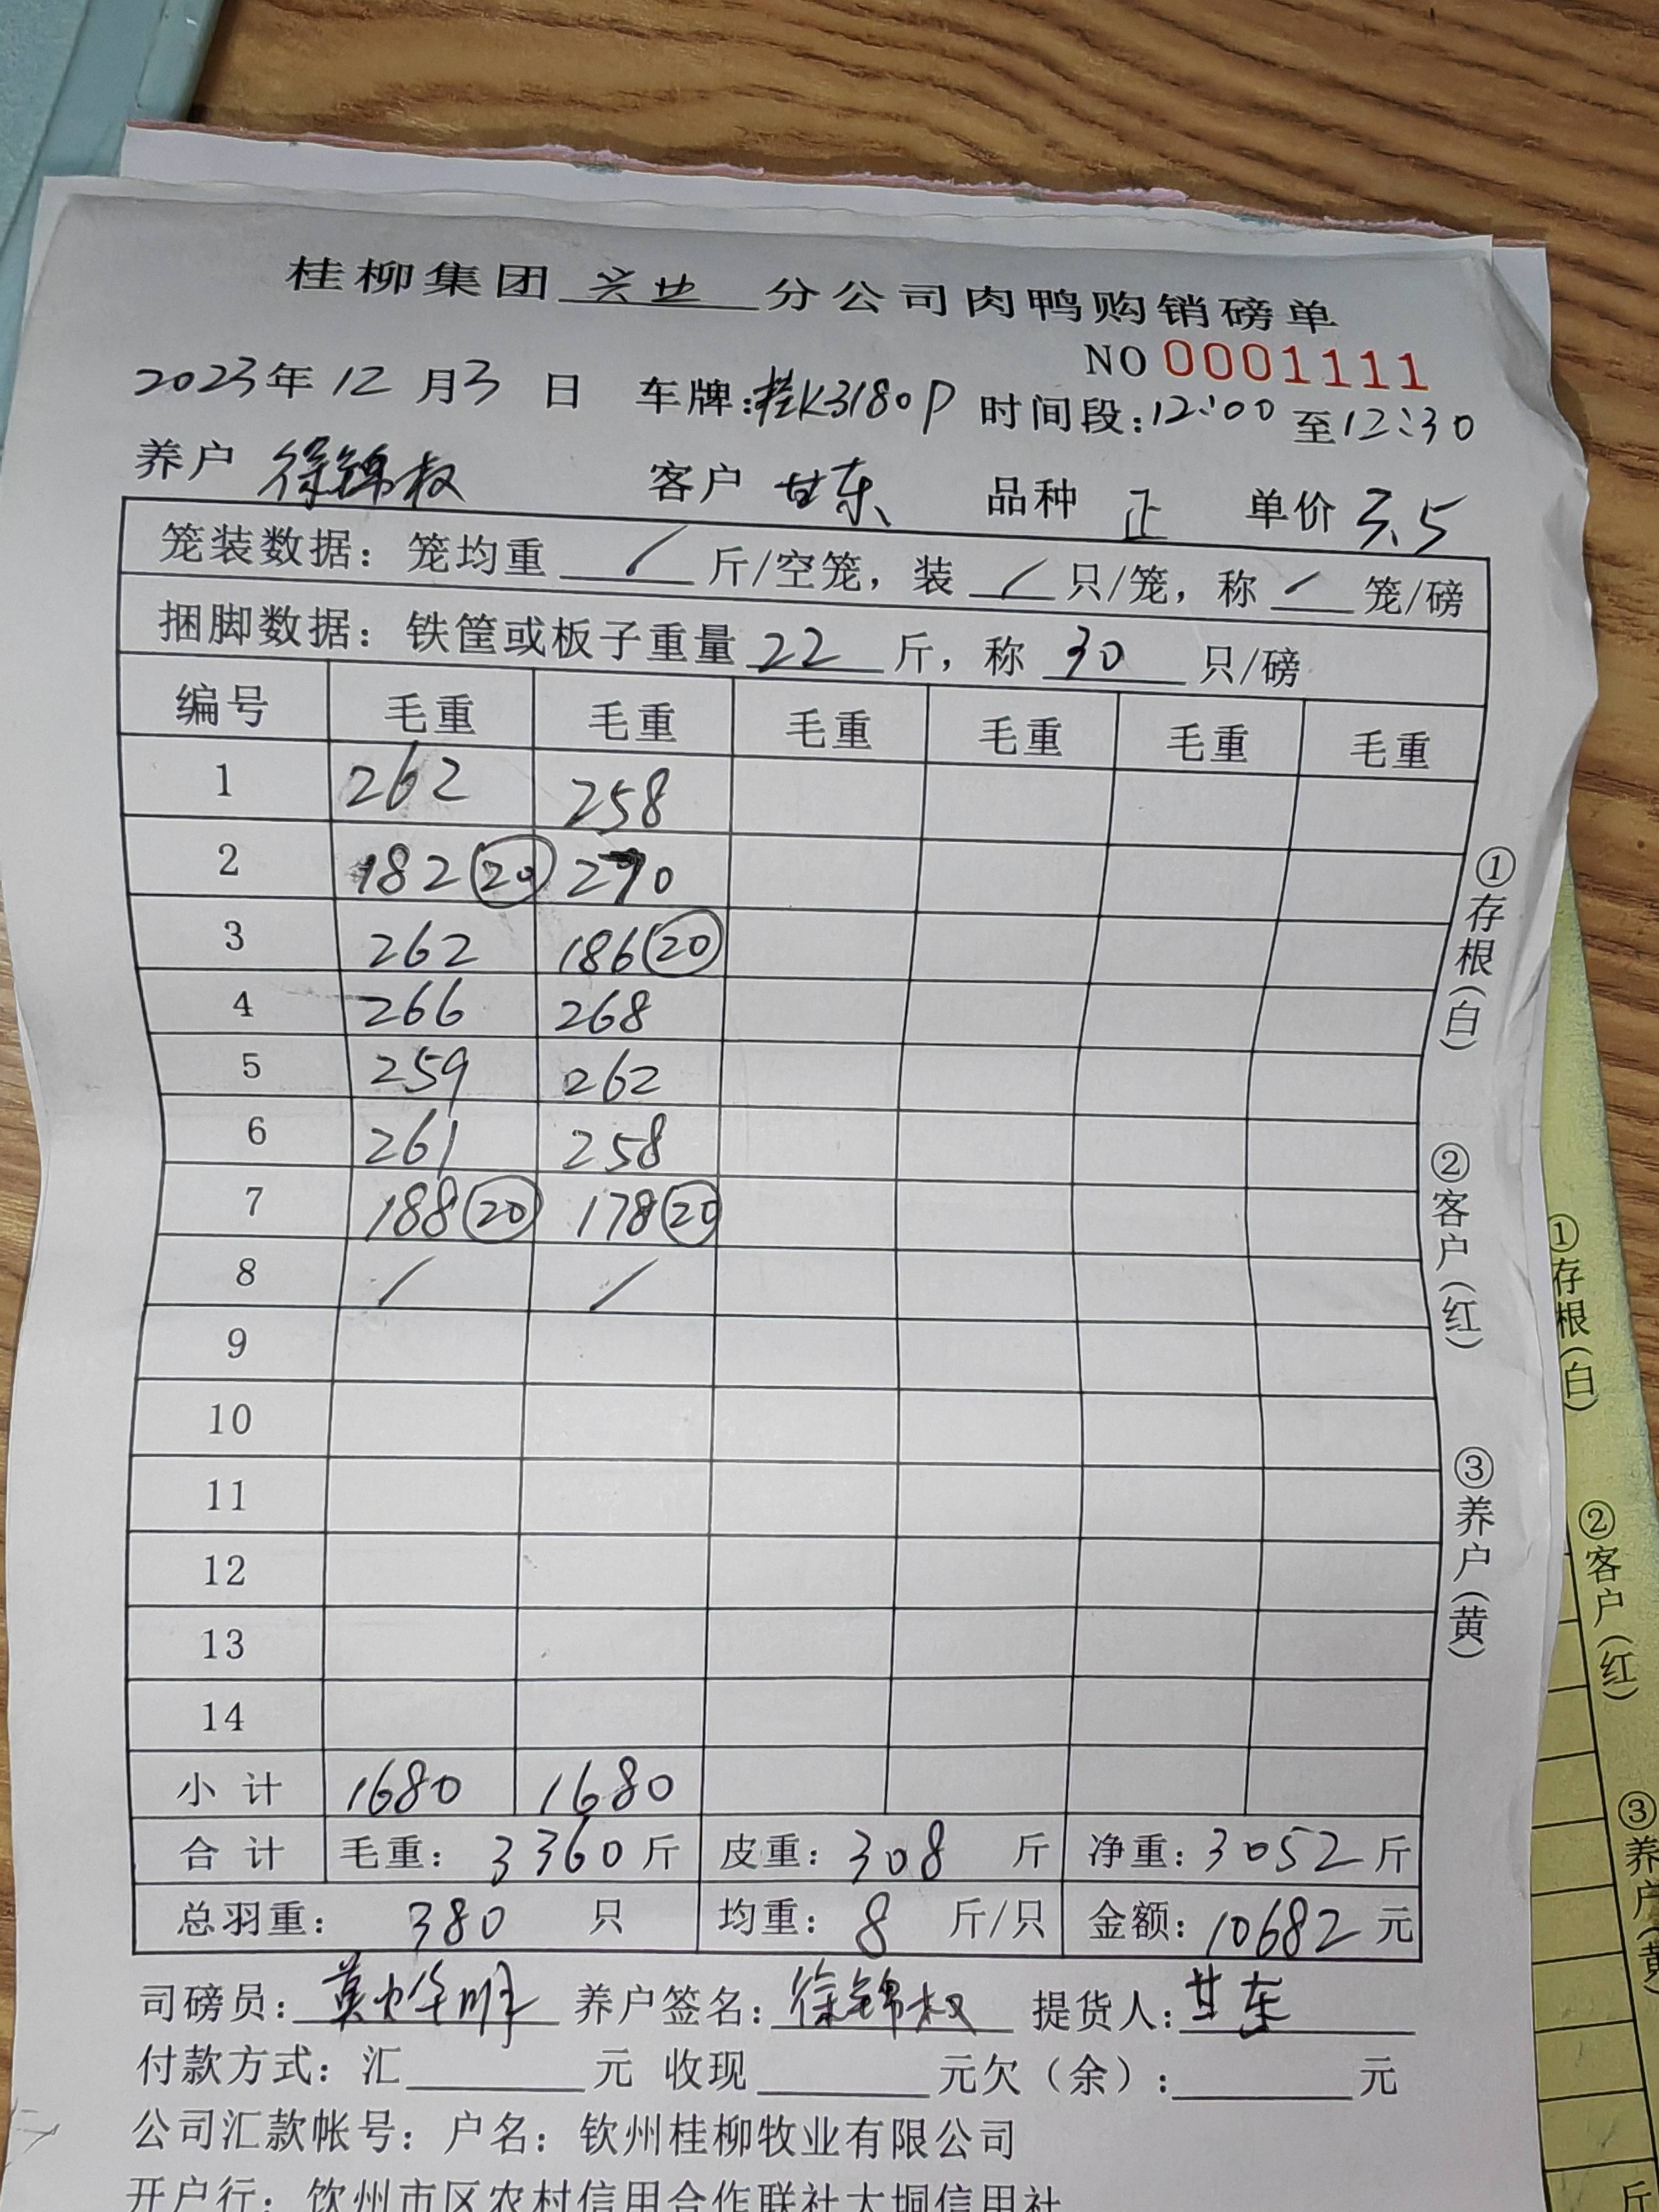 桂柳集团 兴业 分公司肉鸭购销磅单
NO 0001111
2023年12月3日 车牌:桂K3180P 时间段:12:00至12:30
养户 徐锦权 客户 甘东 品种 正 单价 3.5
笼装数据：笼均重 / 斤/空笼，装 / 只/笼，称 / 笼/磅
捆脚数据：铁筐或板子重量 22 斤，称 30 只/磅
编号 毛重 毛重 毛重 毛重 毛重 毛重
1 262 258
2 182 20 270
3 262 186 20
4 266 268
5 259 262
6 261 258
7 188 20 178 20
8 / /
9
10
11
12
13
14
小计 1680 1680
合计 毛重：3360斤 皮重：308 斤 净重：3052斤
总羽重：380 只 均重：8 斤/只 金额：10682元
司磅员： 养户签名：徐锦权 提货人：甘东
付款方式：汇 元 收现 元欠（余）： 元
公司汇款帐号：户名：钦州桂柳牧业有限公司
开户行：钦州市区农村信用合作联社大垌信用社
①存根(白)
②客户(红)
③养户(黄)
①存根(白)
②客户(红)
③养户(黄
斤